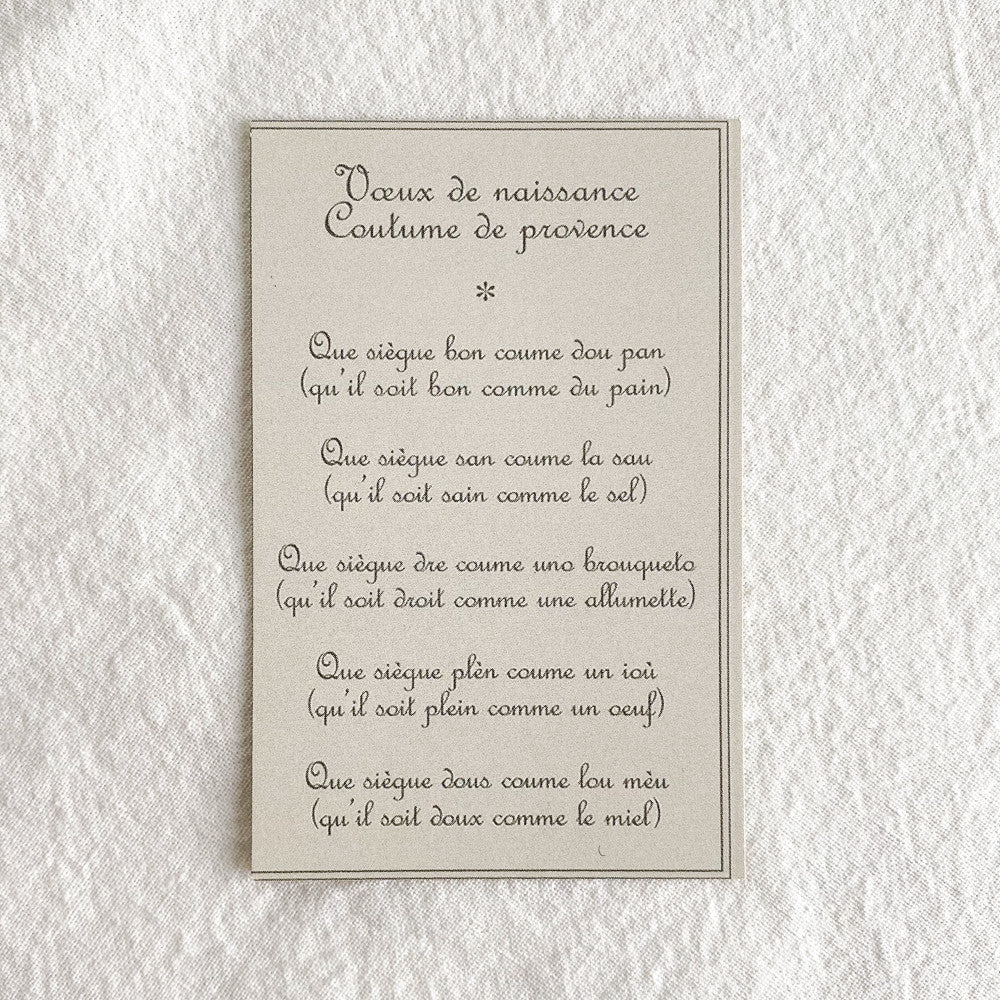 Vœux de naissance
Coutume de provence
*
Que siègue bon coume dou pan
(qu'il soit bon comme du pain)
Que siègue san coume la sau
(qu'il soit sain comme le sel)
Que siègue dre coume uno brouqueto
(qu'il soit droit comme une allumette)
Que siègue plèn coume un ioù
(qu'il soit plein comme un oeuf)
Que siègue dous coume lou mèu
(qu'il soit doux comme le miel)